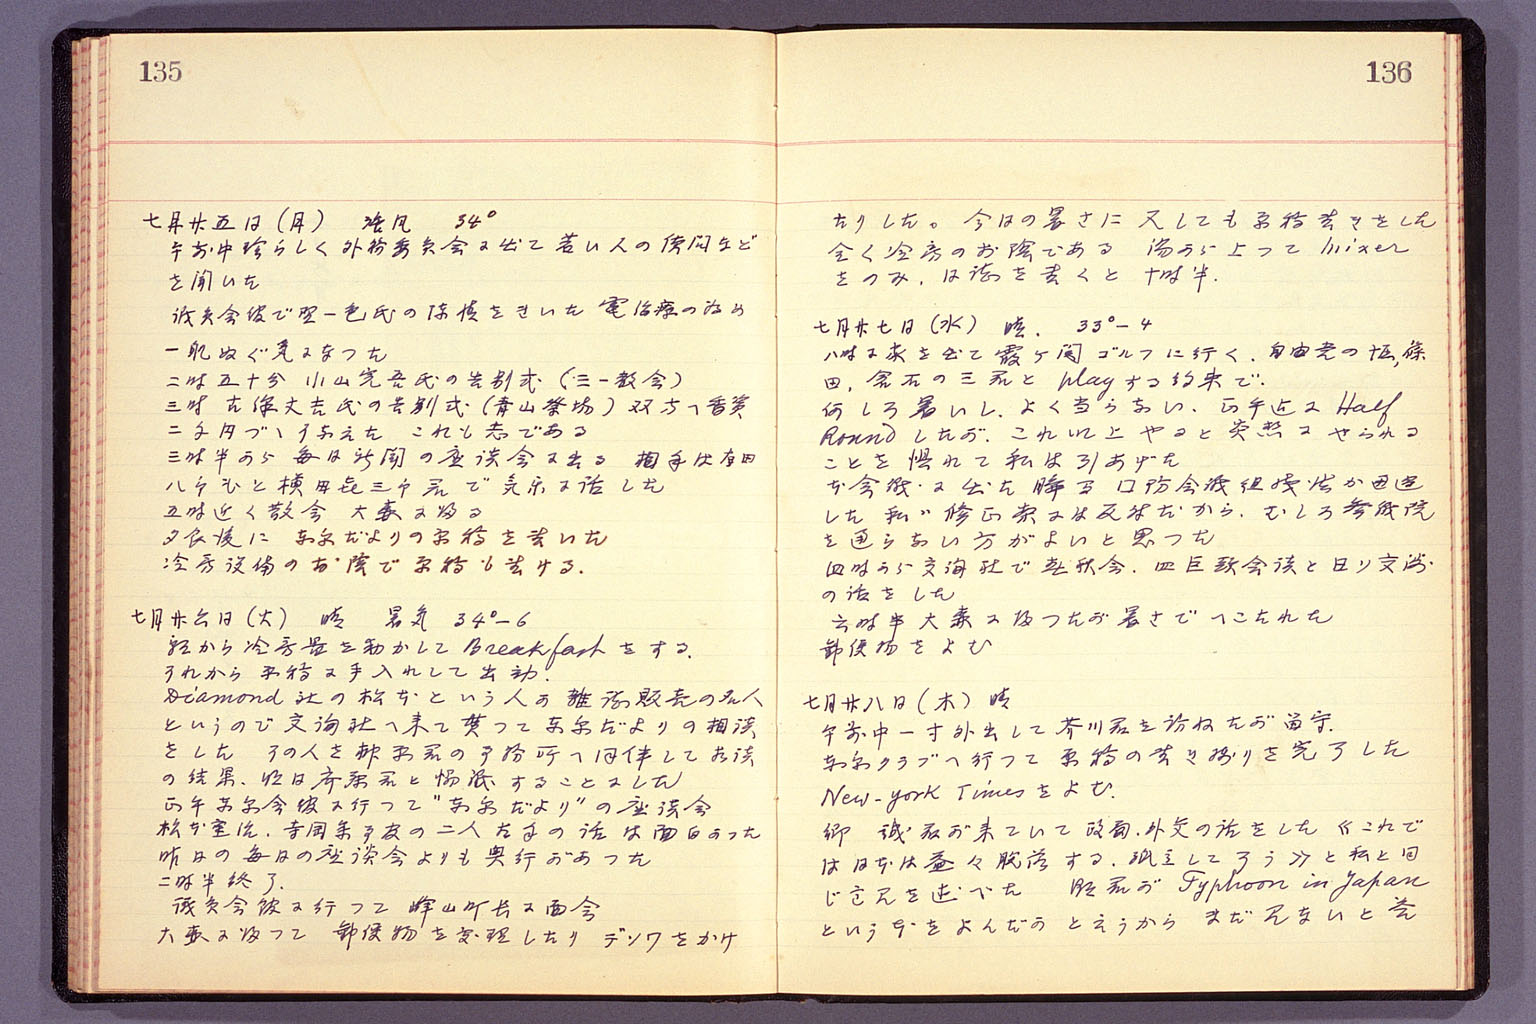 135
七月廿五日(月) 強風 34°
午前中珍らしく外務委員会に出て若い人の質問など
を聞いた
議員会館で 一色氏の陳情をきいた 電 治療の為め
一肌ぬぐ気になつた
二時五十分 小山完吾氏の告別式(三一教会)
三時 古 氏の告別式(青山祭場)双方へ香奠
二千円づゝ与えた これも志である
三時半から毎日新聞の座談会に出る 相手は有田
八郎氏と横田喜三郎君で気楽に話した
五時近く散会 大森に帰る
夕食後に 東京だよりの原稿を書いた
冷房設備のお陰で原稿も書ける.
七月廿六日(火) 晴 暑気 34°−6
朝から冷房器を動かして Breakfast をする.
それから原稿に手入れして出勤.
Diamond 社の松本という人が雑誌販売の名人
というので交詢社へ来て貰つて東京だよりの相談
をした その人を 君の事務所へ同伴して 談
の結果. 明日斉藤君と することにした
正午 会館に行つて"東京だより"の座談会
松本 . 寺岡 の二人 の話は面白かつた
昨日の毎日の座談会よりも興行があつた
二時半終了.
議員会館に行つて 峰山町長に面会
大森に帰つて 郵便物を処理したり デンワをかけ
136
たりした。今日の暑さに 又しても原稿書きをした
全く冷房のお陰である 湯から上つて mixer
をのみ. 日誌を書くと 十時半.
七月廿七日(水) 晴. 33°−4
八時に家を出て霞ヶ関ゴルフに行く. 自由党の 篠
田, 倉石の三君と playする約束で.
何しろ暑いし. よく当らない. 正午近に Half
Round したが. これ以上やると炎熱にやられる
ことを惧れて私は引あげた
本会議に出た 防会議 が
した 私 修正案には反対だから. むしろ参議院
を通らない方がよいと思つた
四時から交詢社で 会. 四巨頭会談と日ソ交渉
の話をした
六時半大森に帰つたが暑さでへこたれた
郵便物をよむ
七月廿八日(木) 晴
午前中一寸外出して芥川君を訪ねたが留守.
東京クラブへ行つて 原稿の書き残りを完了した
New-York Times をよむ.
郷 誠 君が来ていて政局.外交の話をした 《これで
は日本は益々脱落する. 孤立してろう》と私と同
じ意見を述べた 郷君が Typhoon in Japan
という本をよんだか とえうから まだ見ないと答